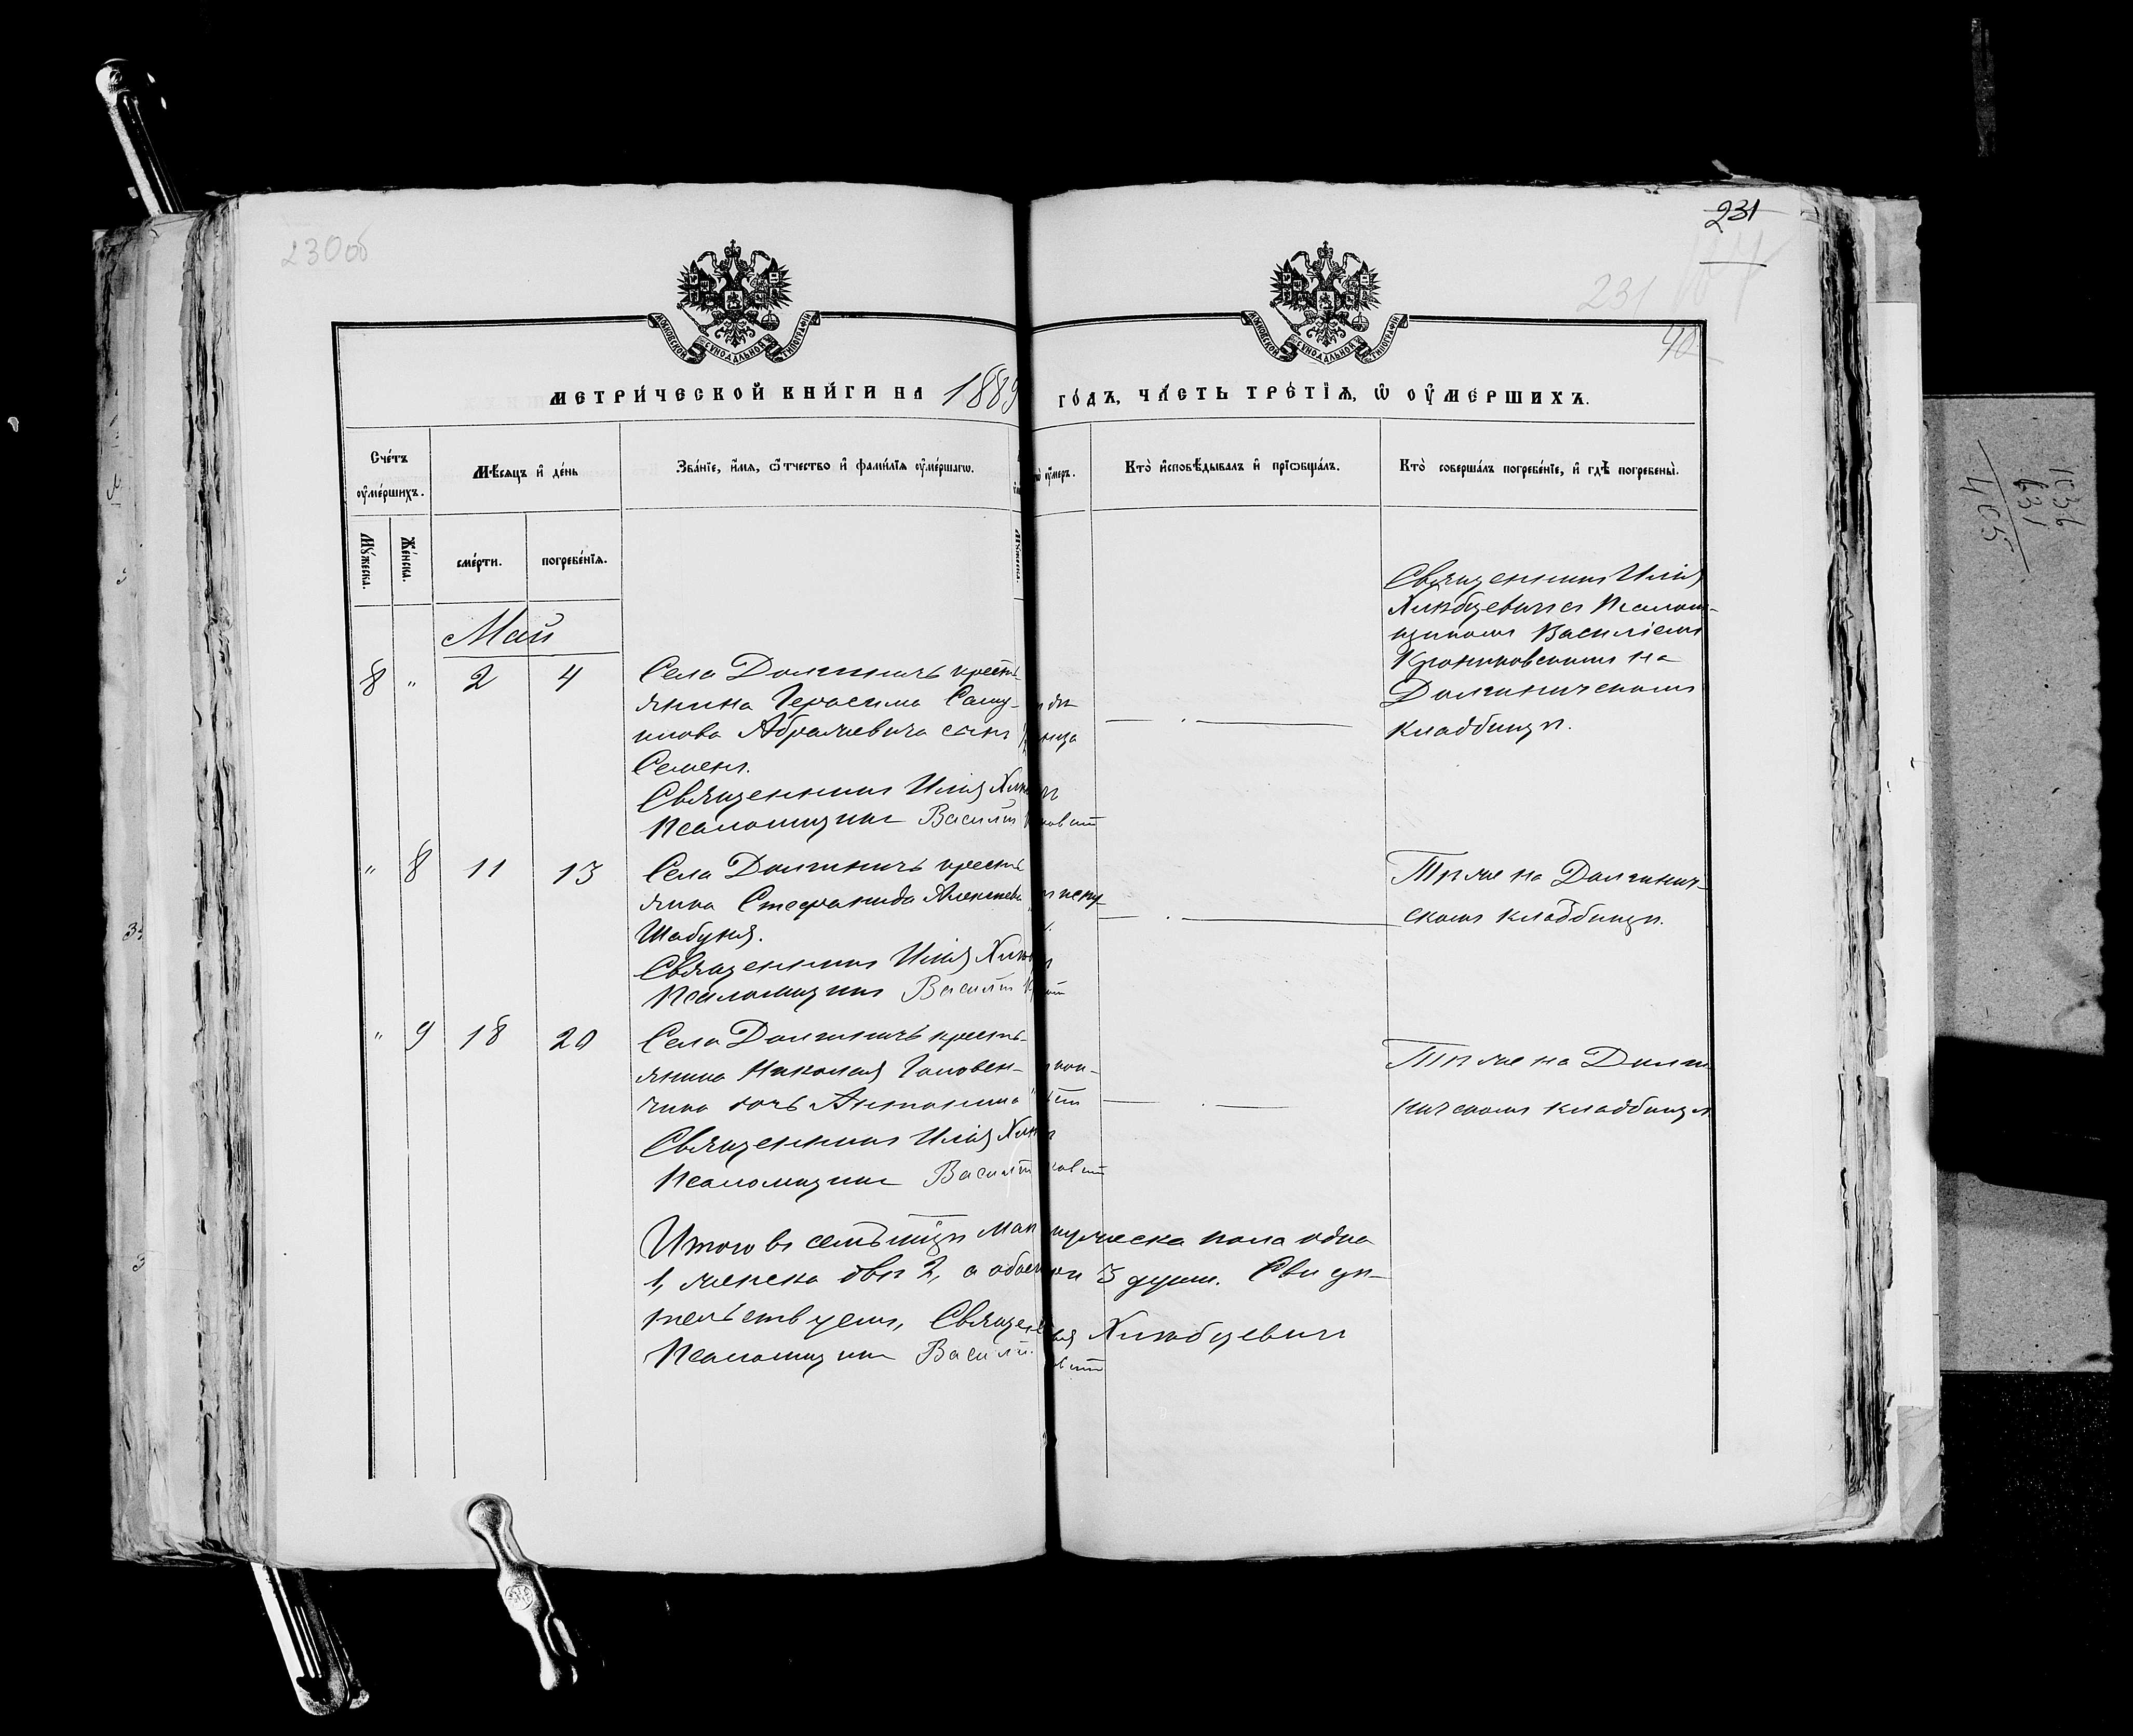 230об
231
231
40
МОСКОВСКОЙ СѴНОДАЛЬНОЙ ТИПОГРАФІИ
МОСКОВСКОЙ СѴНОДАЛЬНОЙ ТИПОГРАФІИ
МЕТРИ́ЧЕСКОЙ КНИ́ГИ НА 1889 ГО́ДЪ, ЧА́СТЬ ТРЕ́ТІѦ, Ѡ ОУ҆МЕ́РШИХЪ.
Сче́тъ оу҆ме́ршихъ.
Мꙋ́жеска.
Же́нска.
Мѣ́сяцъ и҆ де́нь
сме́рти.
погребе́нїѧ.
Зва́нїе, и҆́мѧ, ѻ҆́тчество и҆ фами́лїѧ оу҆ме́ршагѡ.
оу҆́меръ.
Кто̀ и҆сповѣ́дывалъ и҆ прїѡбща́лъ.
Кто̀ соверша́лъ погребе́нїе, и҆ гдѣ̀ погребены̀.
Май
8 " 2 4
Села Долгиничъ кресть-
янина Герасима Саму-
илова Абрамевича сынъ
Семенъ.
Священникъ Илія
Псаломщикъ Василій
Священникъ Илія
Хлѣбцевичъ съ Псалом-
щикомъ Василіемъ
на
Долгиничскомъ
кладбищѣ.
" 8 11 13
Села Долгиничъ кресть
янка Стефанида Алексѣев
Шабуня.
Священникъ Илія
Псаломщикъ Василій
Тѣ же на Долгинич-
скомъ кладбищѣ.
" 9 18 20
Села Долгиничъ кресть-
янина Николая Головен-
чика дочь Антонина
Священникъ Илія
Псаломщикъ Василій
Тѣ же на Долги
ничскомъ кладбищѣ
Итого въ семъ м‑цѣ маѣ мужеска пола одна
1, женска двѣ 2, а обоего 3 души. Свидѣ-
тельствуемъ, Священ Хлѣбцевичъ
Псаломщикъ Василій